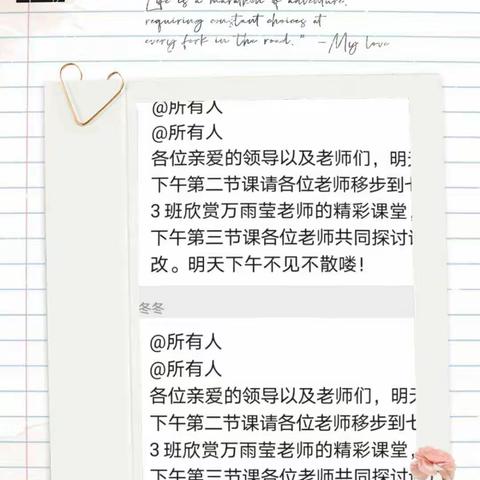 Life is a marathon of adventure,
requiring constant choices at
every fork in the road." -My love
@所有人
@所有人
各位亲爱的领导以及老师们，明
下午第二节课请各位老师移步到七
3班欣赏万雨莹老师的精彩课堂，
下午第三节课各位老师共同探讨
改。明天下午不见不散喽！
冬冬
@所有人
@所有人
各位亲爱的领导以及老师们，明天
下午第二节课请各位老师移步到七
3班欣赏万雨莹老师的精彩课堂，
下午第三节课各位老师共同探讨